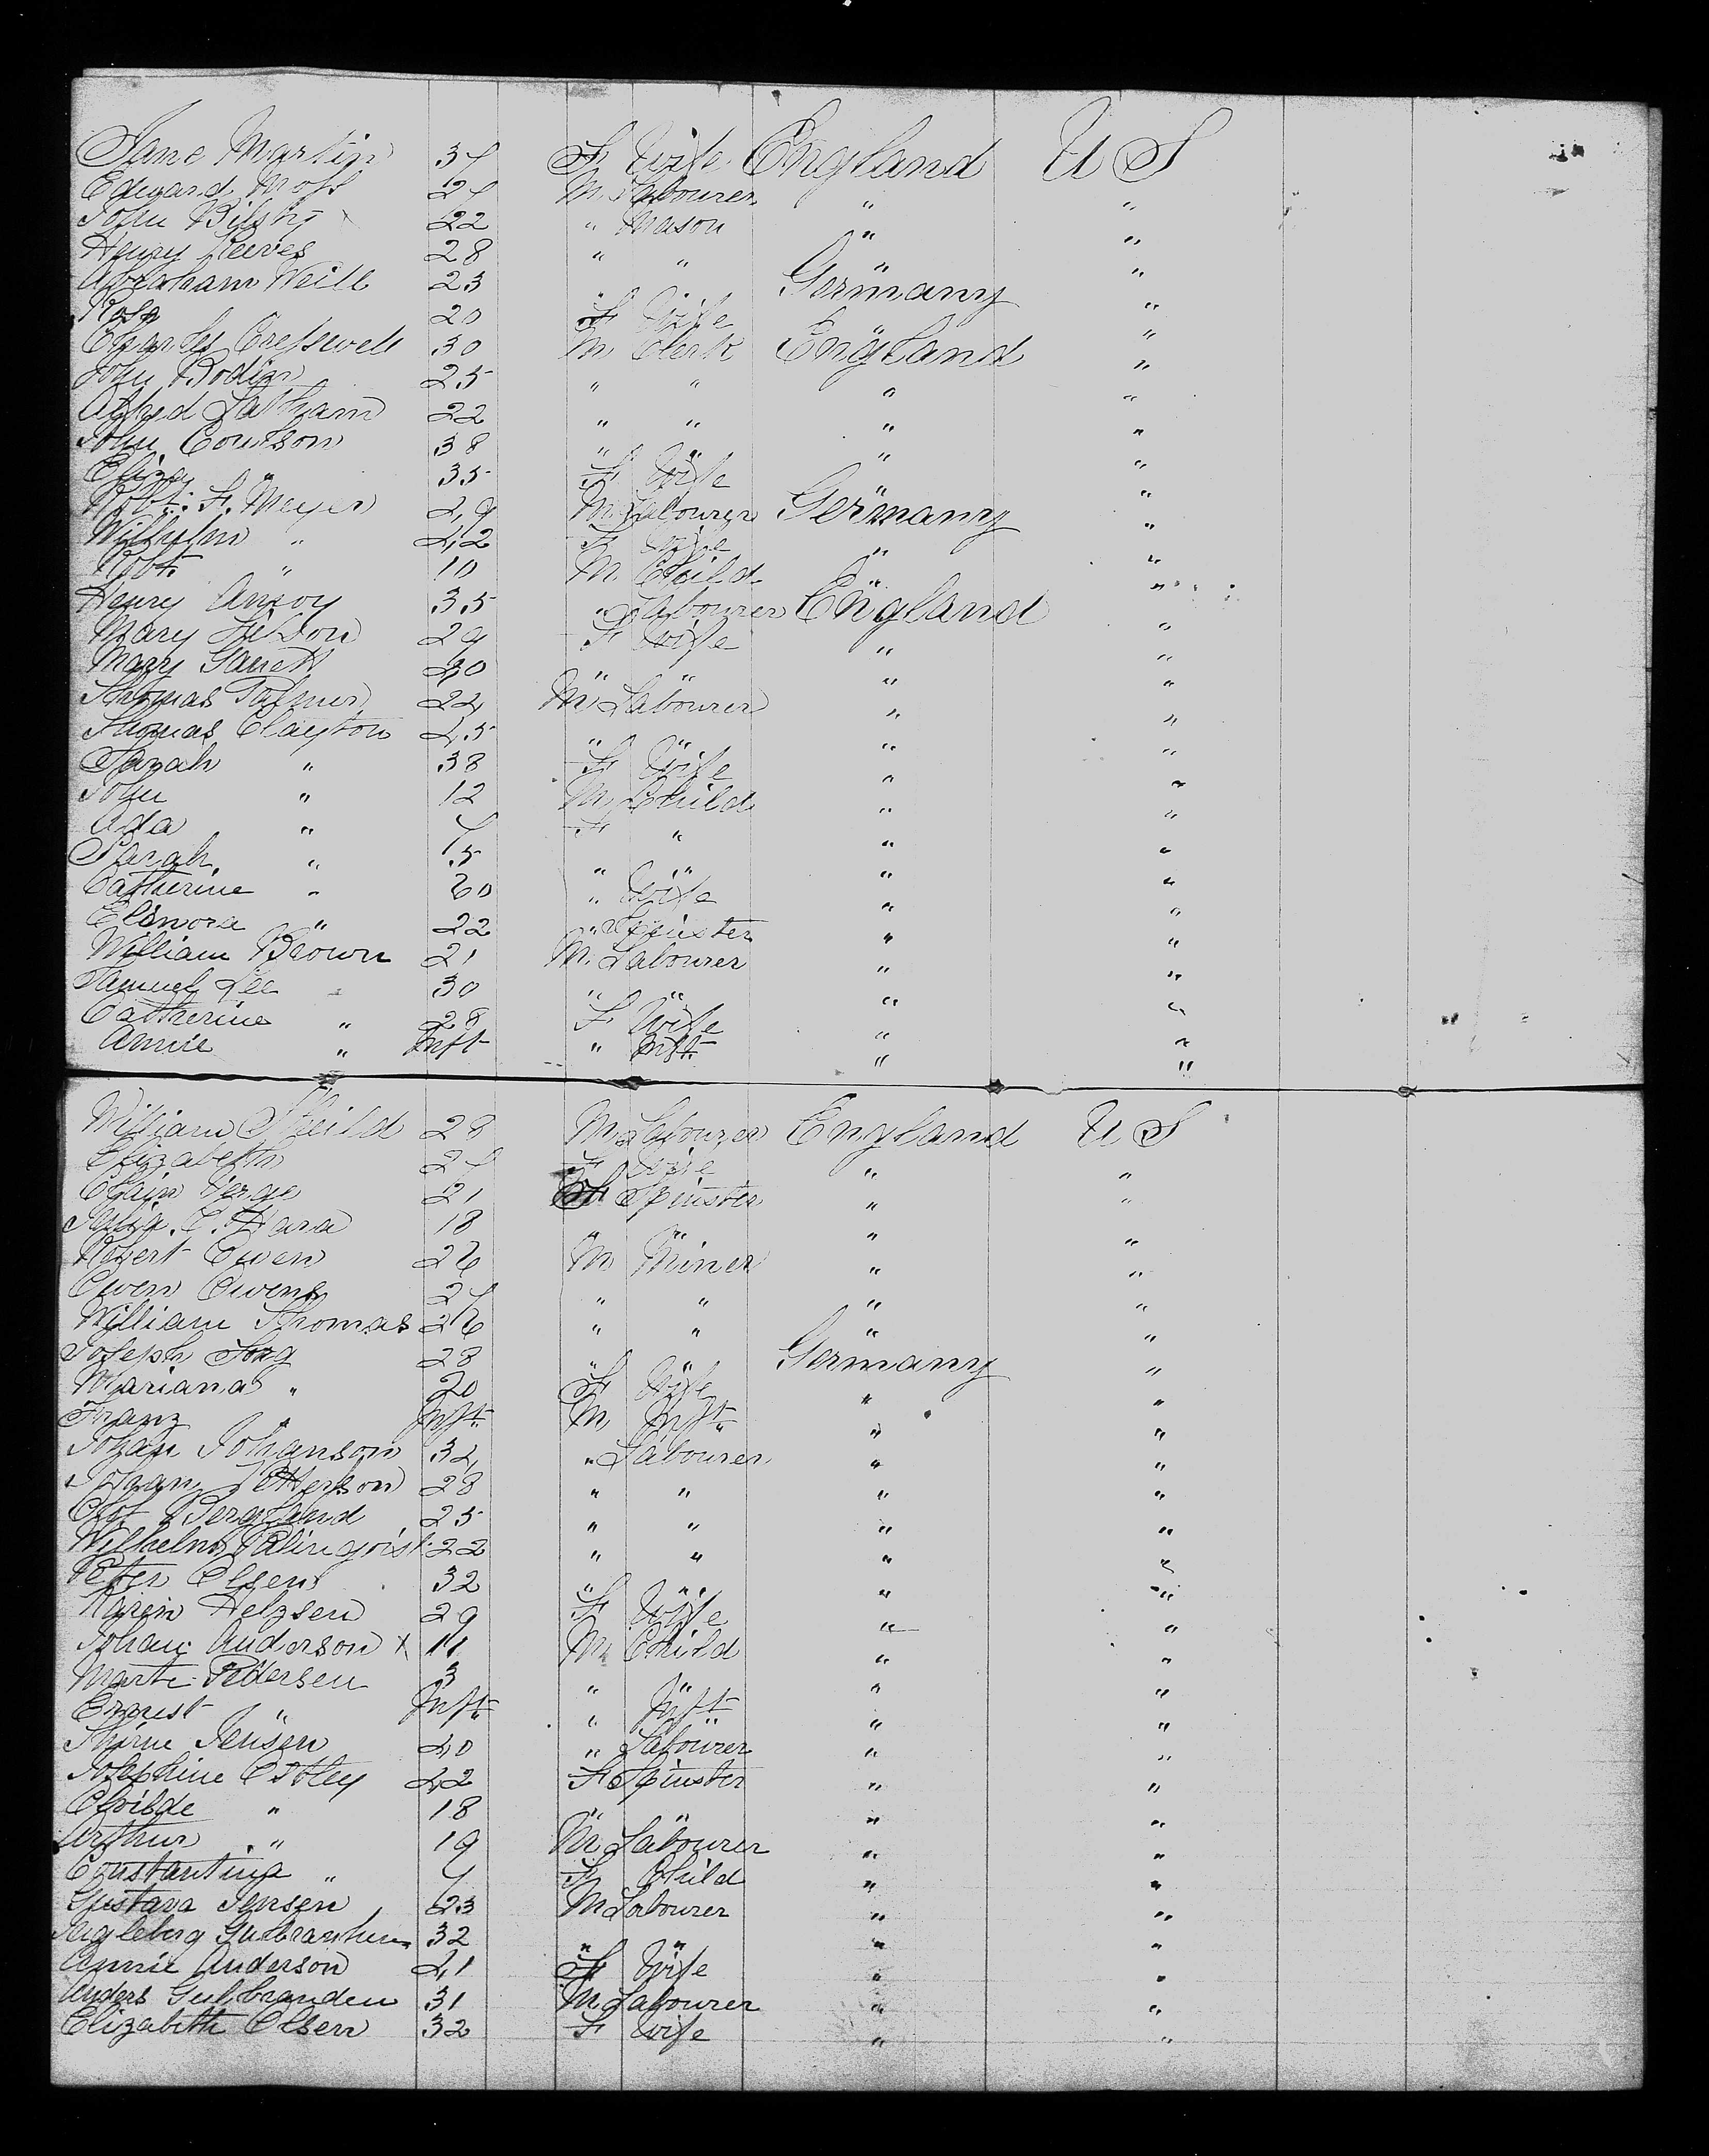 Jane Martin 37 F Wife England U S
Edward Moss 27 M Labourer " "
John Bilsby 22 " Mason " "
Henry Reeves 28 " " " "
Abraham Weill 23 " " Germany "
Rosa 20 F Wife " "
Charles Cresswell 30 M Clerk England "
John Bodin 25 " " " "
Alfred Latham 22 " " " "
John Coulson 38 " " " "
Eliza " 35 F Wife " "
Robt. F. Meyer 29 M Labourer Germany "
Wilhelm " 42 F Wife " "
Robt. " 10 M Child " "
Henry 35 " Labourer England "
Mary 29 F Wife " "
Mary Garrett 40 " " " "
Thomas Palmer 22 M Labourer " "
Thomas Clayton 45 " " " "
Sarah " 38 F Wife " "
John " 12 M Child " "
Ada " 7 F " " "
Sarah " 5 " " " "
Catherine " 60 " Wife " "
Elinora " 22 " Spinster " "
William Brown 21 M Labourer " "
Samuel Lee 30 " " " "
Catherine " 28 F Wife " "
Annie " Inft " Inft " "
William Sheild 28 M Labourer England U S
Elizabeth 27 F Wife " "
21 Spinster " "
Julia O'Hara 18 " " " "
Robert Owen 26 M Miner " "
Owen Owens 27 " " " "
William Thomas 26 " " " "
Joseph Song 28 " " Germany "
Mariana " 20 F Wife " "
Franz " Inft M Inft " "
Johan Johanson 32 " Labourer " "
Johan 28 " " " "
Olof Bergland 25 " " " "
Wilhelm 22 " " " "
Peter Olsen 32 " " " "
Karin Helzsen 29 F Wife " "
Johan Anderson x 11 M Child " "
Marte Pedersen 3 " " " "
Ernest " Inft " Inft " "
Jensen 40 " Labourer " "
Josephine 42 F Spinster " "
" 18 " " " "
Arthur " 19 M Labourer " "
Constantina " 7 F Child " "
Gustava Jensen 23 M Labourer " "
32 " " " "
Annie Anderson 41 F Wife " "
Anders Gulbranden 31 M Labourer " "
Elizabeth Olsen 32 F Wife " "